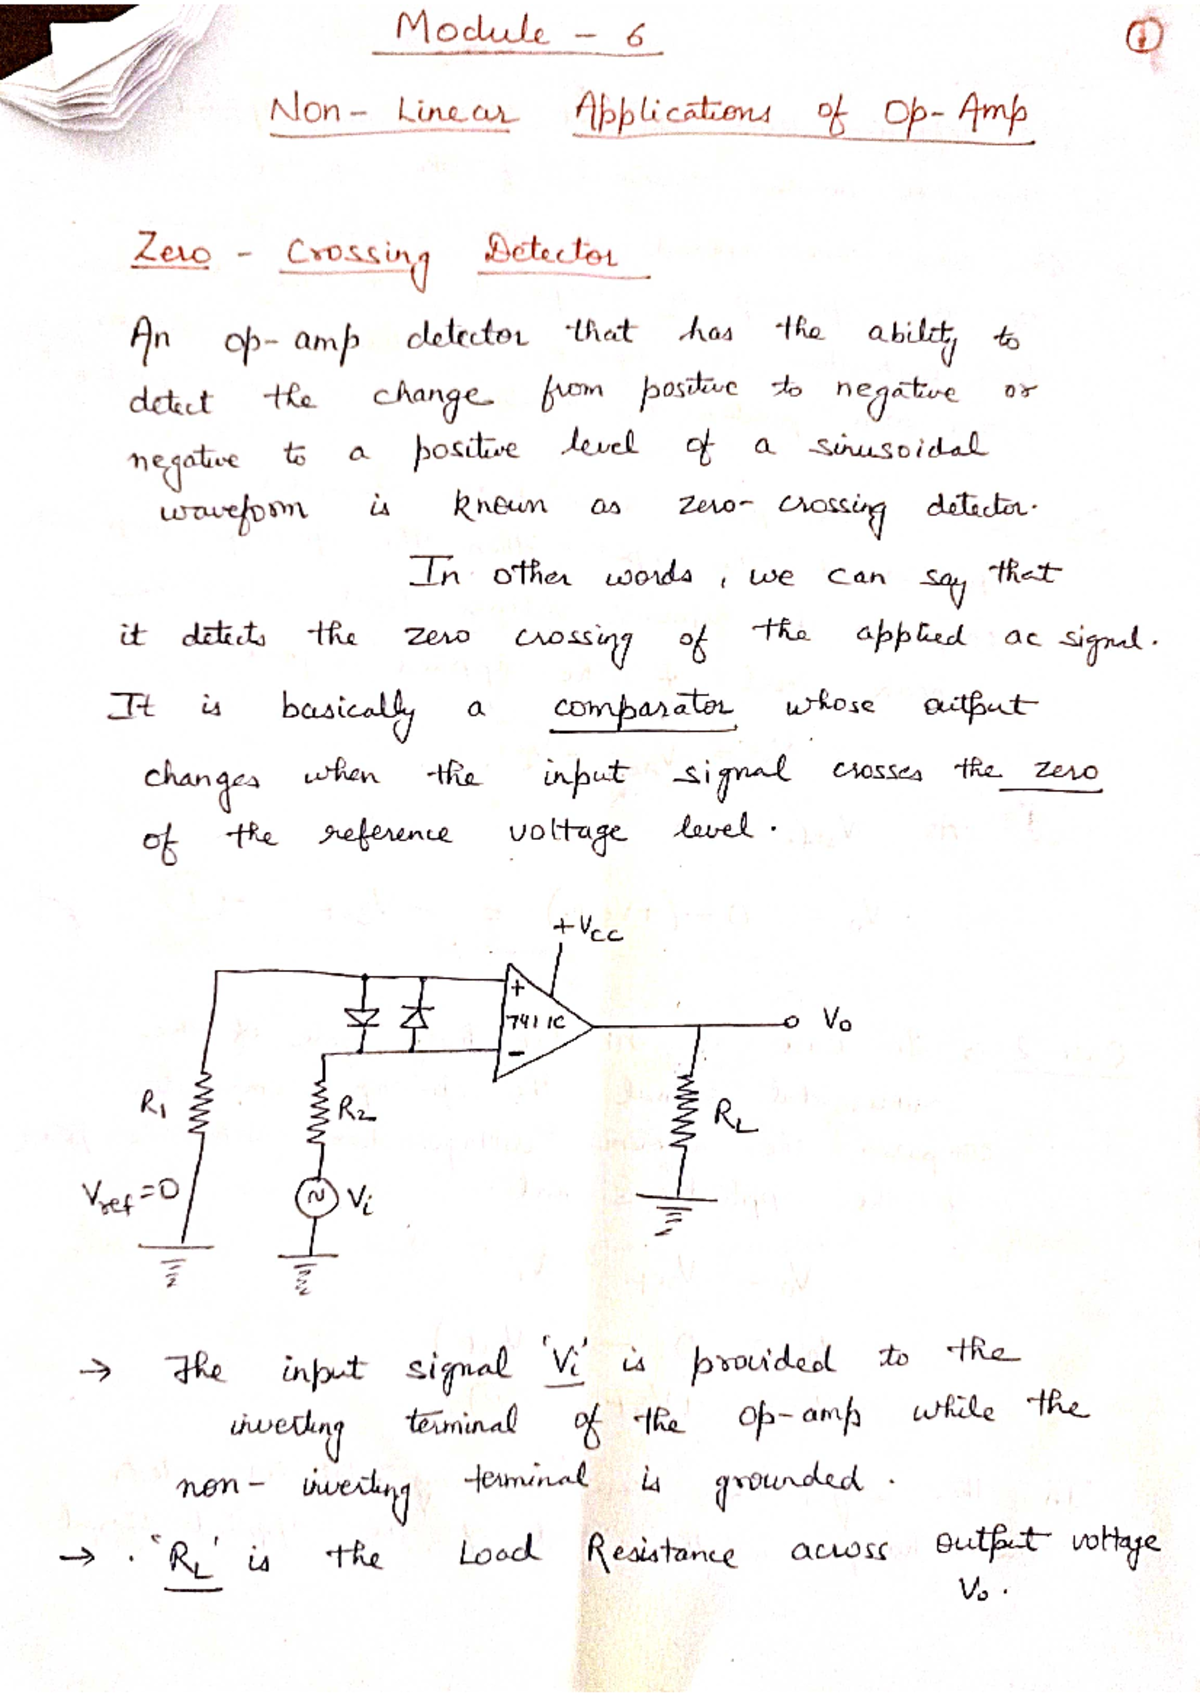 Module - 6
1
Non-Linear Applications of Op-Amp
Zero - Crossing Detector
An op-amp detector that has the ability to
detect the change from positive to negative or
negative to a positive level of a sinusoidal
waveform is known as zero-crossing detector.
In other words, we can say that
it detects the zero crossing of the applied ac signal.
It is basically a comparator whose output
changes when the input signal crosses the zero
of the reference voltage level.
+Vcc
+
741 IC
-
Vo
R1
R2
RL
Vref=0
~ Vi
→ The input signal 'Vi' is provided to the
inverting terminal of the op-amp while the
non-inverting terminal is grounded.
→ . 'RL' is the Load Resistance across output voltage
Vo.